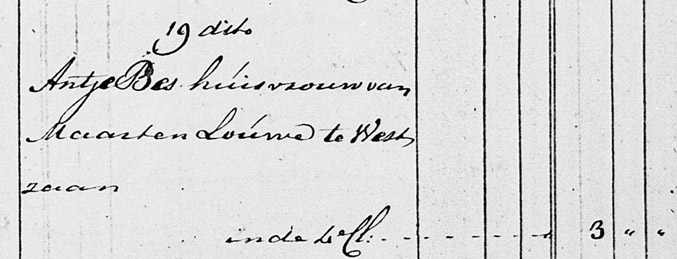 19 dito
Antje Bes huisvrouw van
Maarten Louwe te West
zaan
in de 4e Cl: - - - - - - - 3 " "